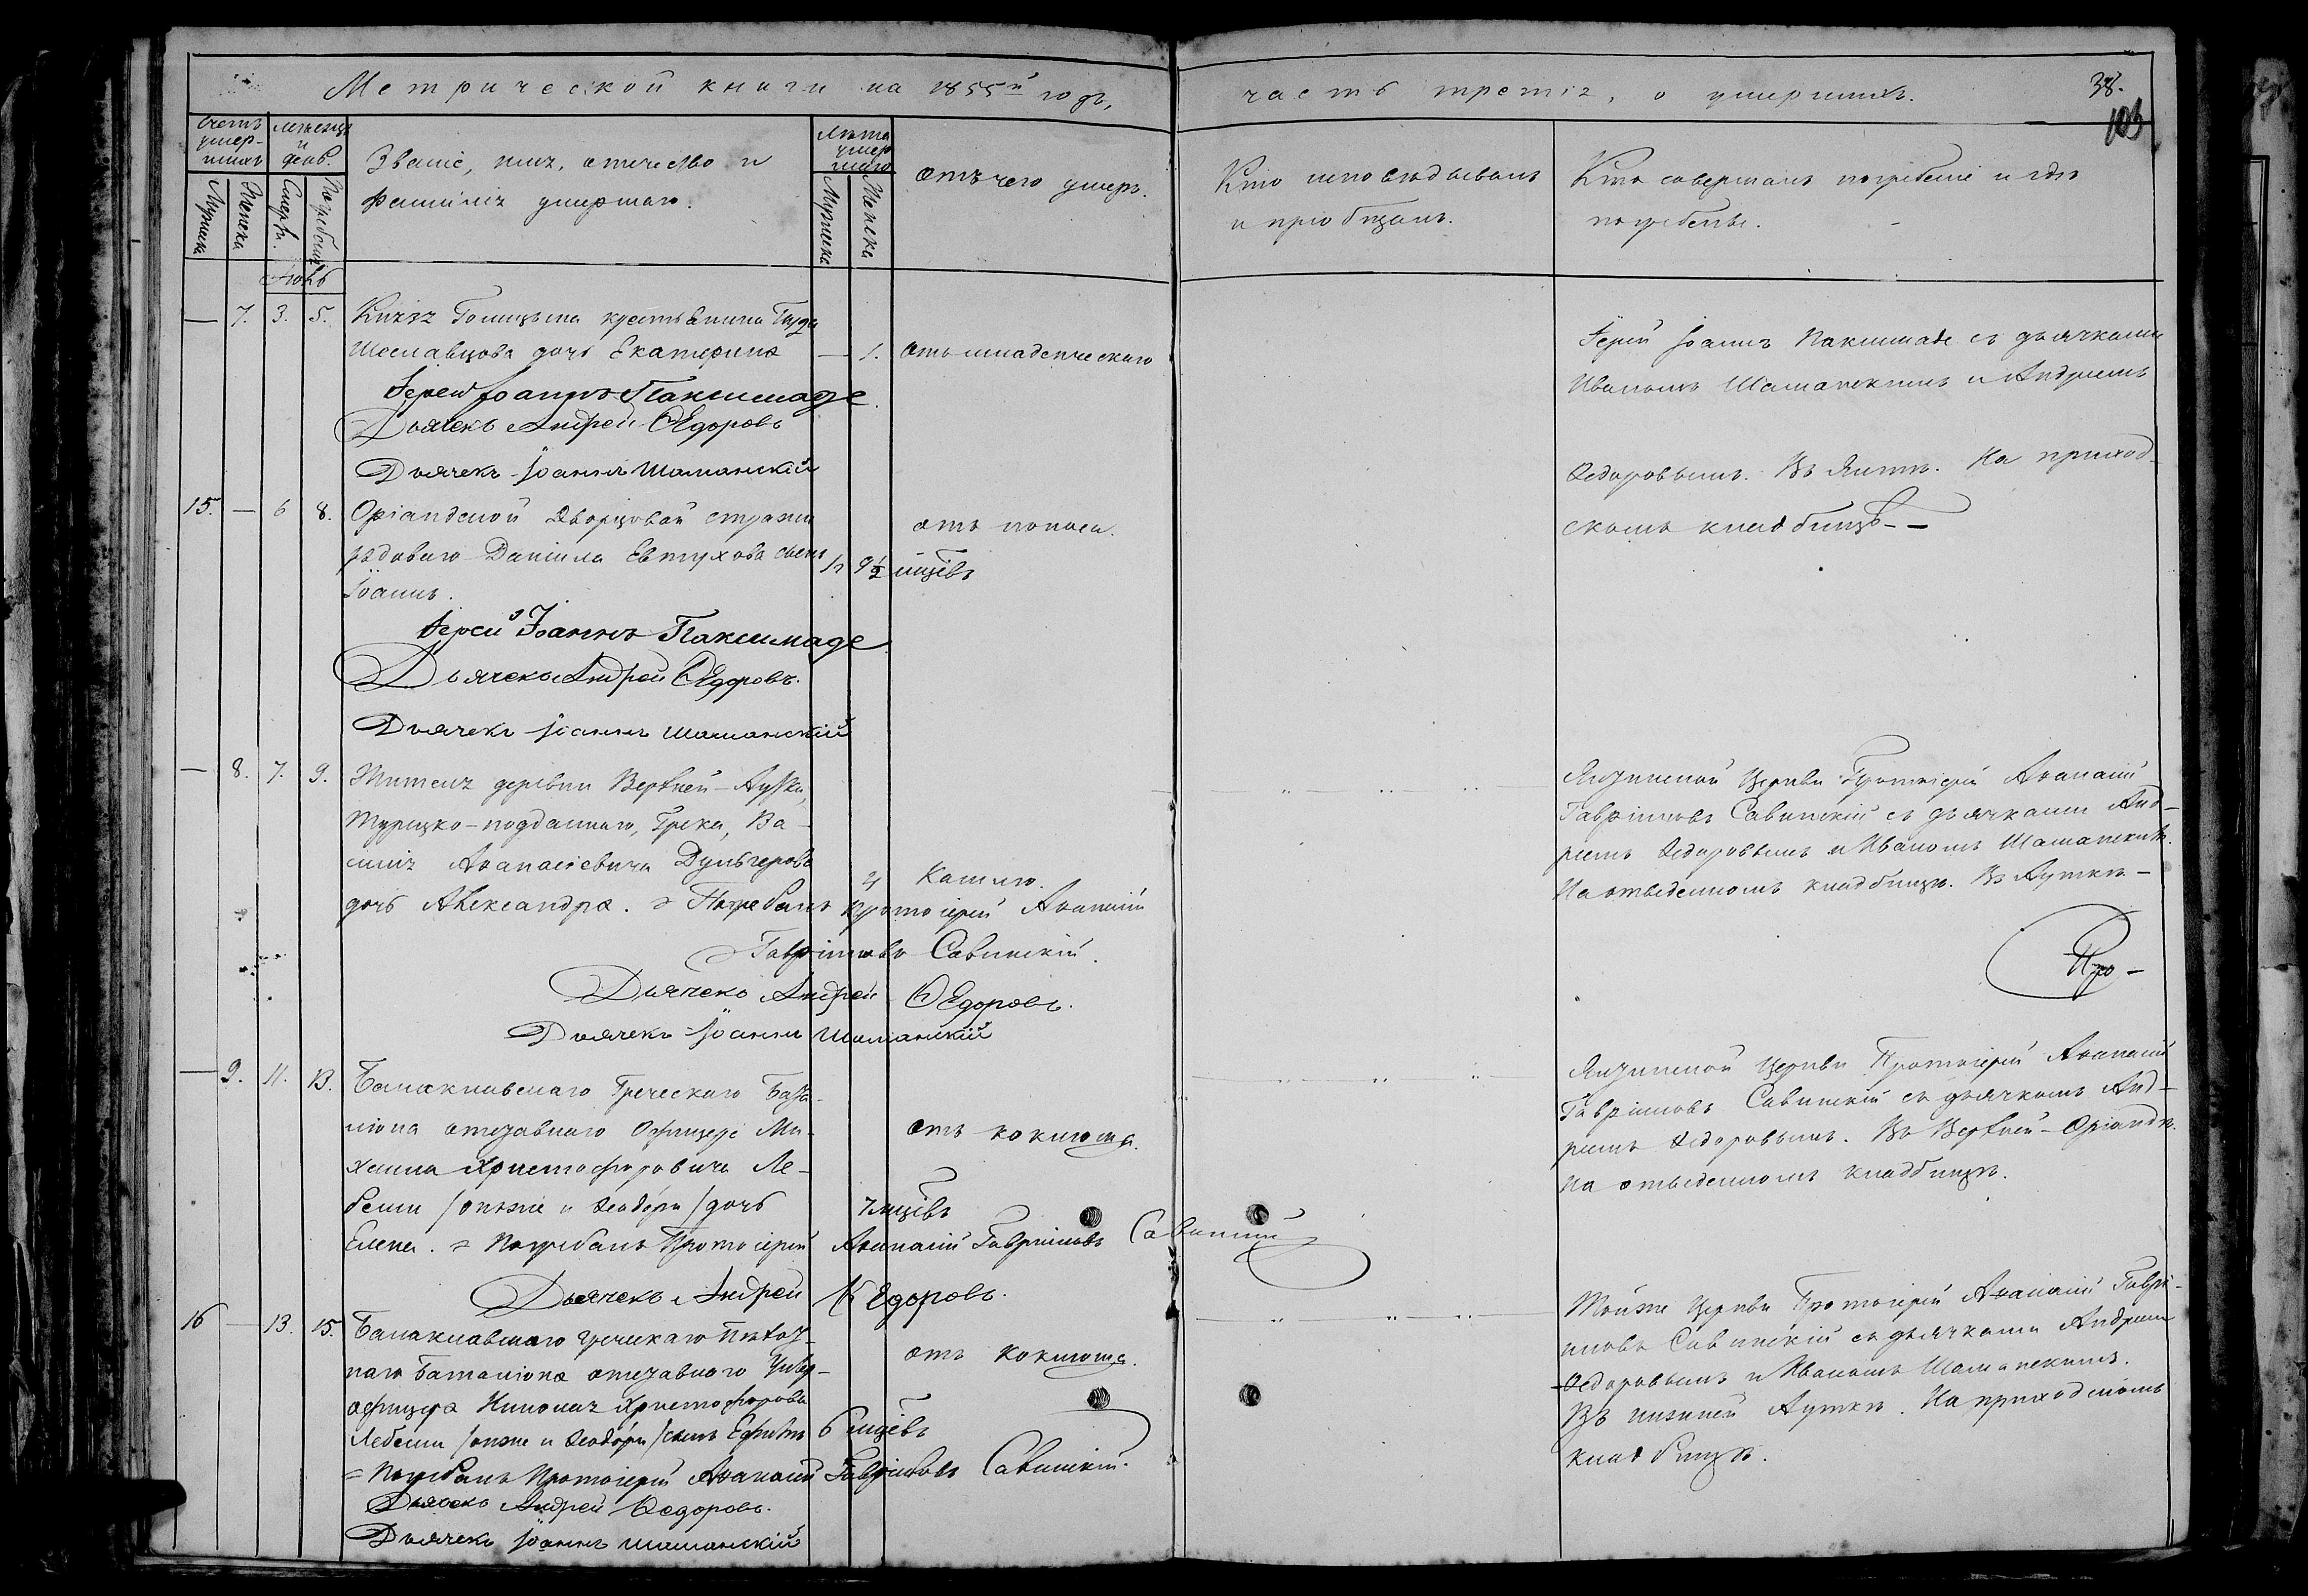 Метрической книги на 1855й годъ,
часть третія, о умершихъ.
38.
103
Счетъ умер-
шихъ
Мужеска
Женска
Мѣсяцъ
и
день.
Смерти.
Погребенія
Званіе, имя, отчество и
фамилія умершаго.
Лѣта
умер
шаго
Мужеска
Женска
отъ чего умеръ.
Кто исповѣдывалъ
и пріобщалъ.
Кто совершалъ погребеніе и гдѣ
погребены.
— 7. 3. 5. Князя Голицына крестьянина
дочь Екатерина — 1. отъ младенческаго
Іерей Іоаннъ Паксимаде
Дьячекъ Андрей Ѳедоровъ
Дьячекъ Іоаннъ Шаманскій
Іерей Іоаннъ Паксимаде съ дьячками
Иваномъ Шаманскимъ и Андреемъ
Ѳедоровымъ. Въ Ялтѣ. На приход-
скомъ кладбищѣ
15. — 6 8. Оріандской Дворцовой стражи
рядоваго Даніила Евтухова сынъ
Іоаннъ.
отъ поноса.
Іерей Іоаннъ Паксимаде
Дьячекъ Андрей Ѳедоровъ.
Дьячекъ Іоаннъ Шаманскій
— 8. 7. 9. Житель деревни Верхней-Аутки,
Турецко-подданнаго, Грека, Ва-
силія Аѳанасіевича Дульгерова
дочь Александра. = Погребалъ Протоіерей Аѳанасій
4 Кашлю.
Гавріиловъ Савинскій.
Дьячекъ Андрей Ѳедоровъ.
Дьячекъ Іоаннъ Шаманскій
Ялтинской Церкви Протоіерей Аѳанасій
Гавріиловъ Савинскій съ дьячками Анд-
реемъ Ѳедоровымъ и Иваномъ Шаманскимъ.
На отведенномъ кладбищѣ. Въ Ауткѣ -
Про-
— 9. 11. 13. Балаклавскаго Греческаго Бата-
ліона отставнаго Офицера Ми-
хаила Христофоровича Ле-
беши / онже и Ѳеодори / дочь
Елена. = Погребалъ Протоіерей Аѳанасій Гавріиловъ Савинскій
отъ коклюша.
7 мѣсяцевъ
Дьячекъ Андрей Ѳедоровъ.
Ялтинской Церкви Протоіерей Аѳанасій
Гавріиловъ Савинскій съ дьячкомъ Анд-
реемъ Ѳедоровымъ. Въ Верхней-Оріандѣ.
На отведенномъ кладбищѣ.
16 — 13. 15. Балаклавскаго греческаго пѣхот-
наго баталіона отставнаго Унтер-
офицера Николая Христофорова
Лебеши / онже и Ѳеодори / сынъ 6 мѣсяцевъ
отъ коклюша.
= Погребалъ Протоіерей Аѳанасій Гавріиловъ Савинскій.
Дьячекъ Андрей Ѳедоровъ.
Дьячекъ Іоаннъ Шаманскій
Тойже Церкви Протоіерей Аѳанасій Гаврі-
иловъ Савинскій съ дьячками Андреемъ
Ѳедоровымъ и Иваномъ Шаманскимъ.
Въ нижней Ауткѣ. На приходскомъ
кладбищѣ.